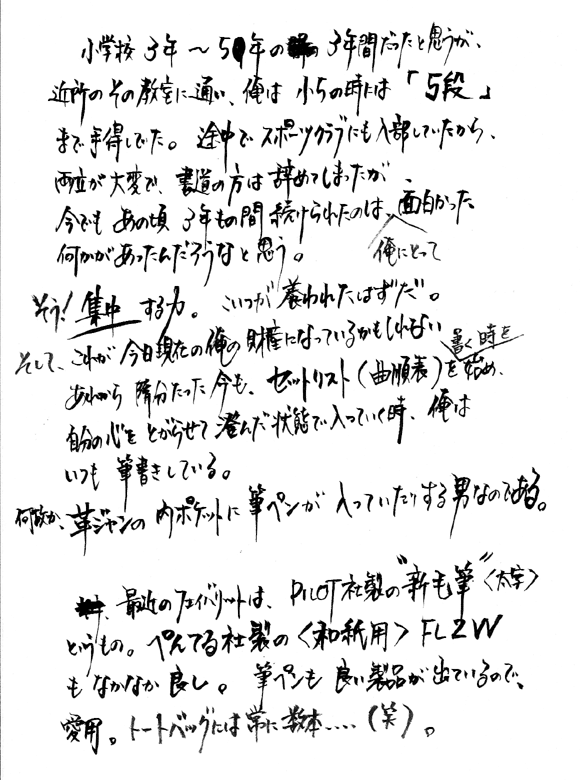 小学校 3年～5年の 3年間だったと思うが、
近所のその教室に通い、俺は 小5の時には「5段」
まで手得していた。途中でスポーツクラブにも入部していたから、
両立が大変で、書道の方は辞めてしまったが、
今でも あの頃 3年もの間 続けられたのは、面白かった
俺にとって
何かがあったんだろうなと思う。
そう！集中する力。こいつが養われたはずだ。
そして、これが今日現在の俺の財産になっているかもしれない
書く時を
あれから随分たった今も、セットリスト（曲順表）を始め、
自分の心をとがらせて澄んだ状態で入っていく時、俺は
いつも筆書きしている。
何故か、革ジャンの内ポケットに筆ペンが入っていたりする男なのである。
最近のフェイバリットは、PILOT社製の"新毛筆"〈太字〉
というもの。ぺんてる社製の〈和紙用〉FL2W
もなかなか良し。筆ペンも良い製品が出ているので、
愛用。トートバッグには常に数本….（笑）。